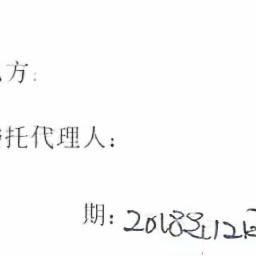 方:
托代理人:
期: 2018.12